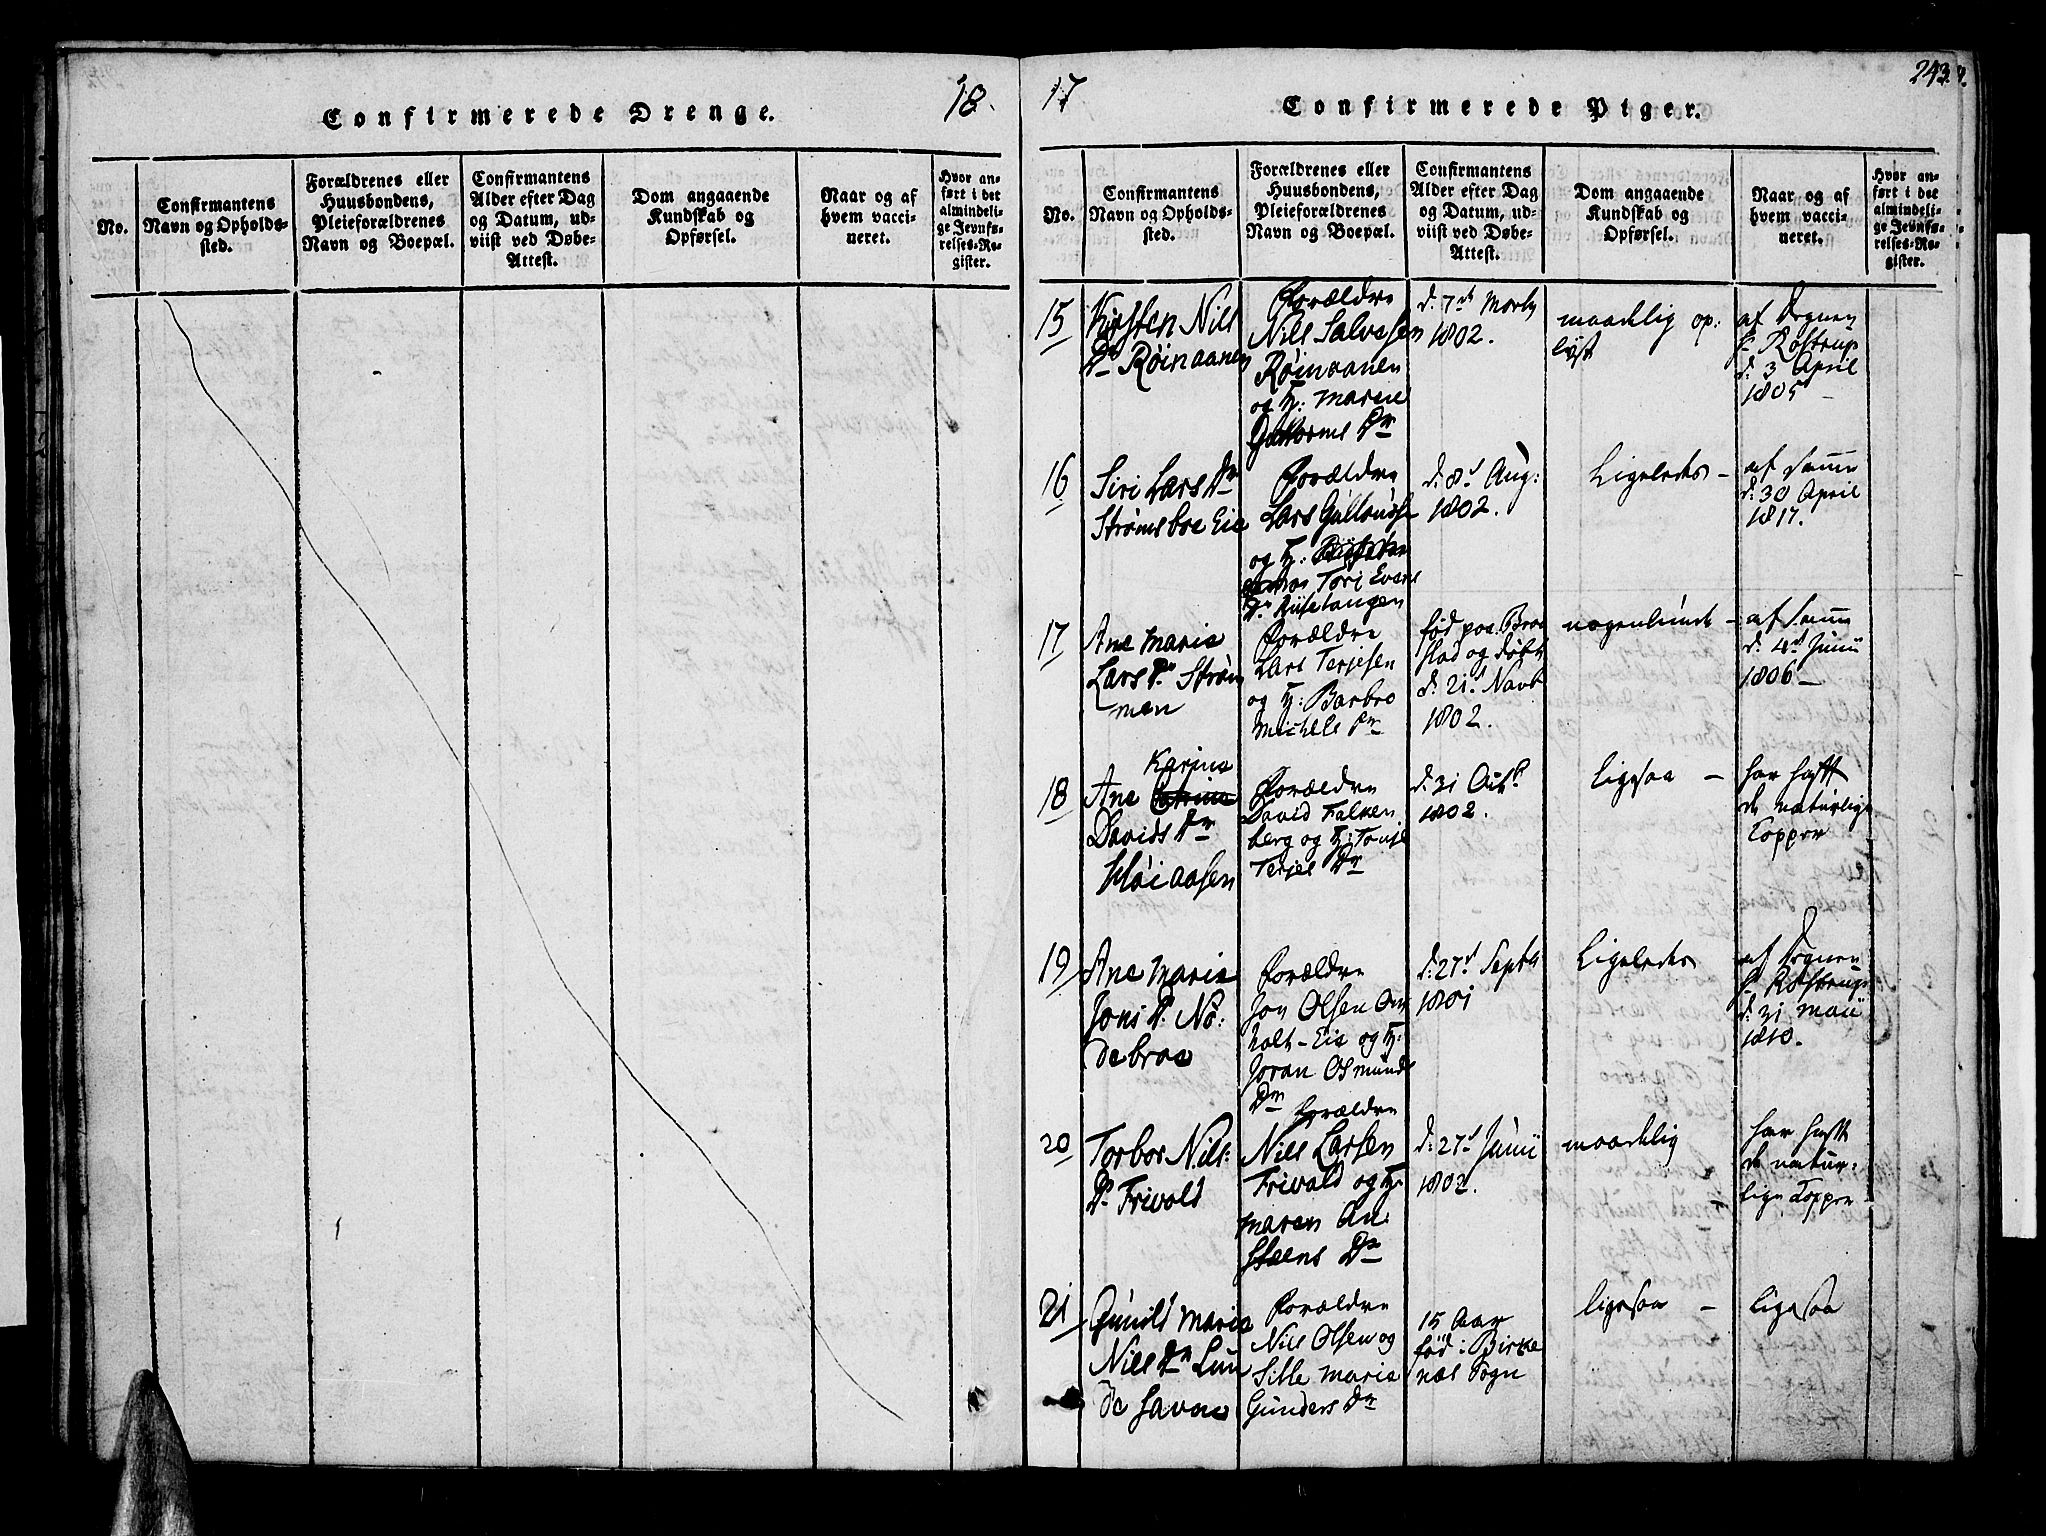 18.
Confirmerede Drenge.
No.
Confirmantens
Navn og Opholds-
sted.
Forældrenes eller
Huusbondens,
Pleieforældrenes
Navn og Boepæl.
Confirmantens
Alder efter Dag
og Datum, ud-
viist ved Døbe-
Attest.
Dom angaaende
Kundskab og
Opførsel.
Naar og af
hvem vacci-
neret.
Hvor an-
ført i det
almindeli-
ge Jevnfø-
relses-Re-
gister.
17
243.
Confirmerede Piger.
No.
Confirmantens
Navn og Opholds-
sted.
Forældrenes eller
Huusbondens,
Pleieforældrenes
Navn og Boepæl.
Confirmantens
Alder efter Dag
og Datum, ud-
viist ved Døbe-
Attest.
Dom angaaende
Kundskab og
Opførsel.
Naar og af
hvem vacci-
neret.
Hvor an-
ført i det
almindeli-
ge Jevnfø-
relses-Re-
gister.
15
Kirsten Nils
Dr Røinaanen
Forældre
Nils Salvesen
Røinaanen
og H: Maren
Guttorms Dr
d: 7de Marty
1802.
maadelig op:
lyst
af Degnen
Hr Rostrup
d: 3 April
1805 –
16
Siri Lars Dr
Strømsboe Eie
Forældre
Lars Gullaufse
og H:
Tori Evens
Dr Riisetangen
d: 8d Aug:
1802.
Ligeledes –
af Samme
d: 30 April
1817.
17
Ane Maria
Lars Dr Strøm
men
Forældre
Lars Terjesen
og H: Barbro
Michells Dr
fød paa Braa
stad og døbt
d: 21d Novb
1802.
nogenlunde –
af Samme
d: 4de Junii
1806 –
18
Karine
Ane
Davids Dr
Høiaasen
Forældre
David Falken
berg og H: Tonje
Terjes Dr
d: 31 Octb
1802.
Ligesaa –
har haft
de naturlige
Kopper
19
Ane Maria
Jons Dr. Nø:
debroe
Forældre
Jon Olsen Om
holt-Eie og H:
Joran Osmunds
Dr
d: 27d Septb
1801
Ligeledes
af Degnen
Hr Rostrup
d: 31 Maii
1810.
20
Torbor Nils:
Dr Trivold
Forældre
Nils Larsen
Trivold og H:
Maren An:
steens Dr
d: 27d Junii
1802.
maadelig
har haft
de natur:
lige Kopper
21
Gunild Maria
Nils Dr Lun
de Havne
Forældre
Nils Olsen og
Sille Maria
Gunders Dr
15 Aar
fød i Birke
næs Sogn
ligesaa –
ligesaa